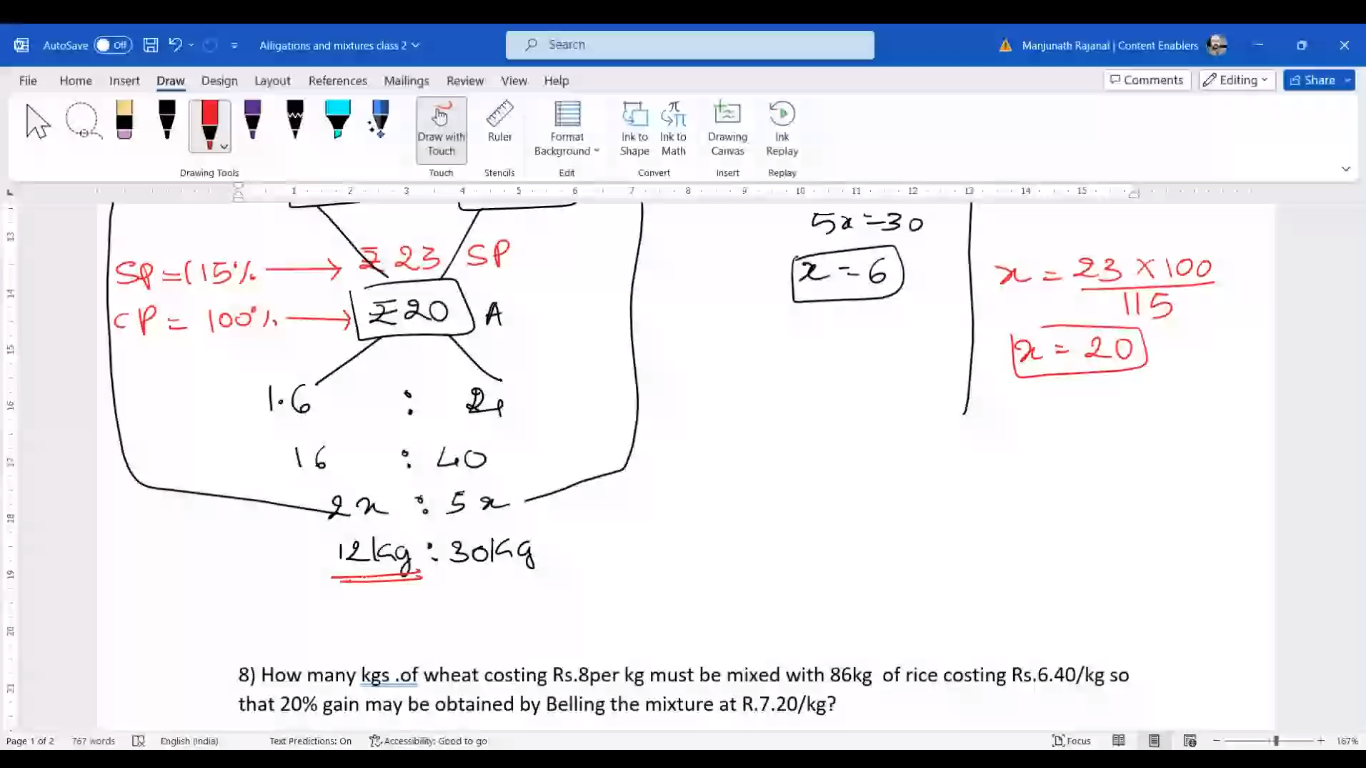 AutoSave Off Alligations and mixtures class 2 Search Manjunath Rajanal | Content Enablers
File Home Insert Draw Design Layout References Mailings Review View Help Comments Editing Share
Draw with Touch Ruler Format Background Ink to Shape Ink to Math Drawing Canvas Insert Ink Replay
Drawing Tools Touch Stencils Edit Convert Insert Replay
1 2 3 4 5 6 7 8 9 10 11 12 13 14 15
5x=30
23 SP
SP = 115% x = 6 x = 23 × 100
115
CP = 100% 20 A
x = 20
1.6 : 24
16 : 40
2x : 5x
12kg : 30kg
8) How many kgs .of wheat costing Rs.8per kg must be mixed with 86kg of rice costing Rs.6.40/kg so
that 20% gain may be obtained by Belling the mixture at R.7.20/kg?
Page 1 of 2 767 words English (India) Text Predictions: On Accessibility: Good to go Focus 167%